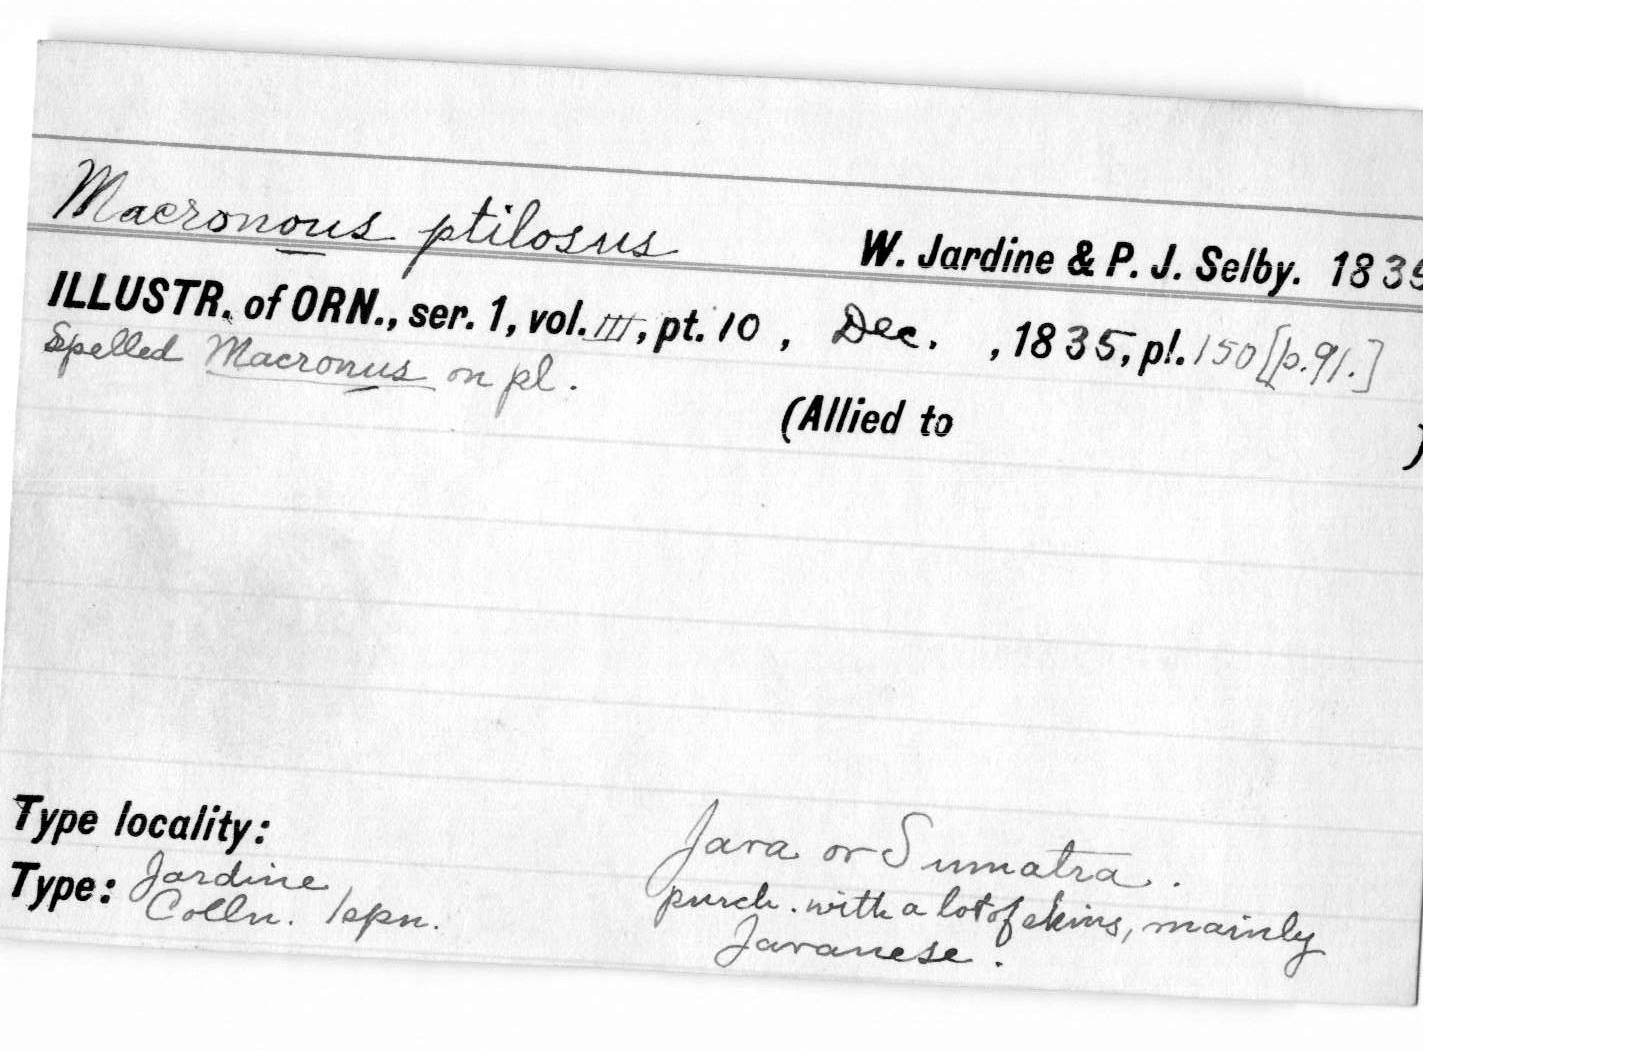 Macronous ptilosus W. Jardine & P. J. Selby. 1835
ILLUSTR. of ORN., ser. 1, vol. III, pt. 10, Dec. , 1835, pl. 150 [p. 91.]
Spelled Macronus on pl.
(Allied to )
Type locality: Java or Sumatra.
Type: Jardine purch. with a lot of skins, mainly
Colln. 1 spn. Javanese.